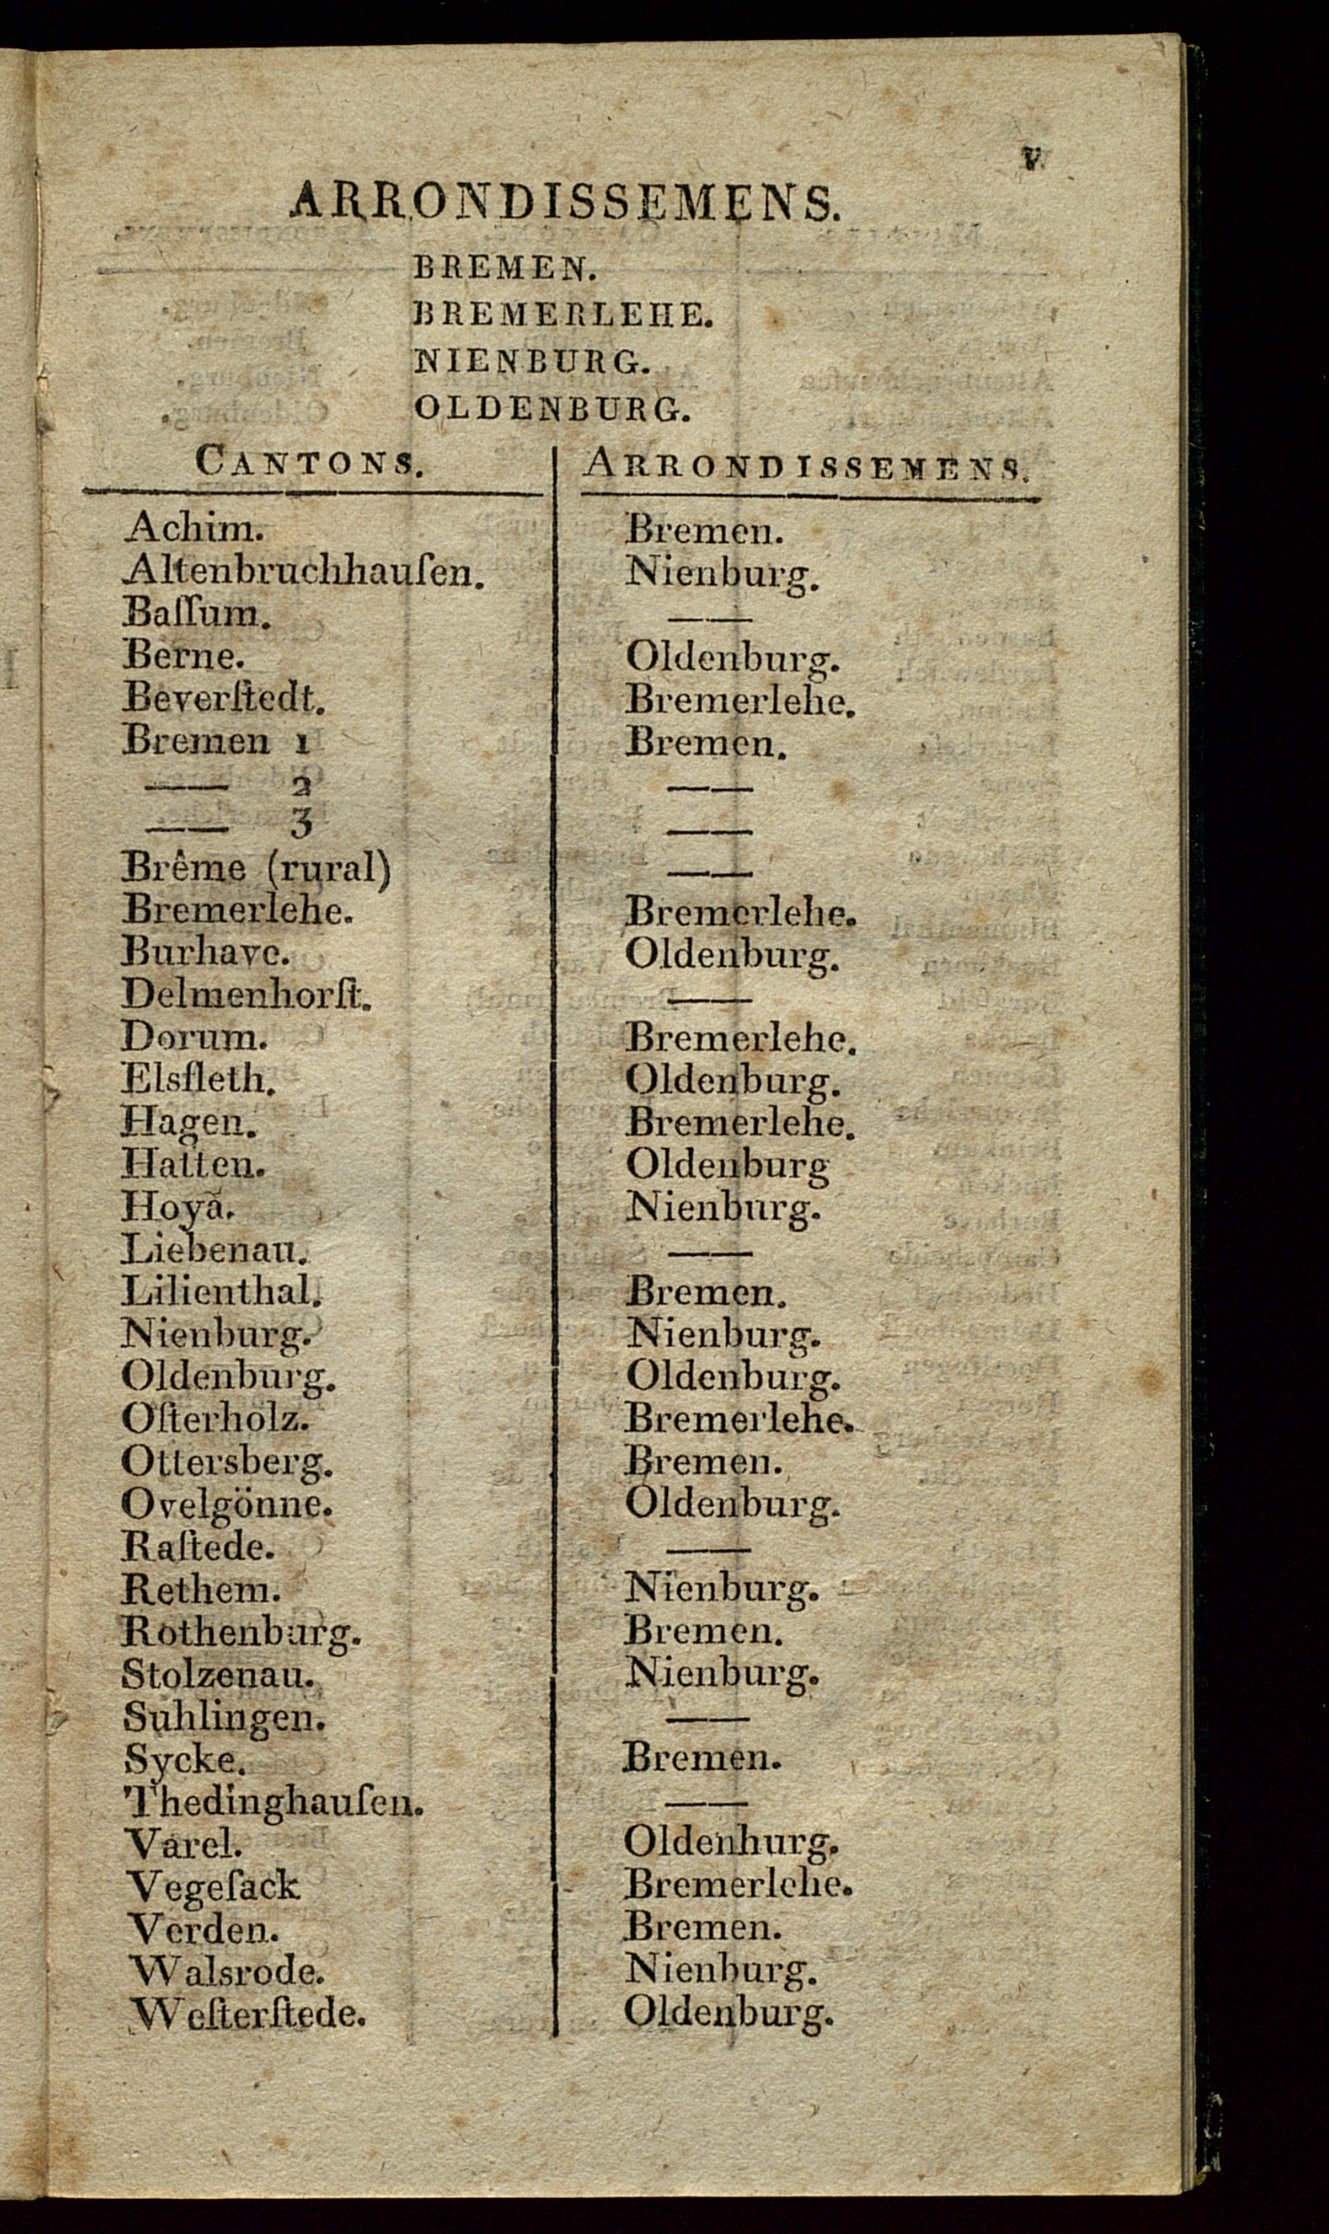 v
ARRONDISSEMENS.
BREMEN.
BREMERLEHE.
NIENBURG.
OLDENBURG.
CANTONS. ARRONDISSEMENS.
Achim. Bremen.
Altenbruchhauſen. Nienburg.
Baſſum. ——
Berne. Oldenburg.
Beverſtedt. Bremerlehe.
Bremen 1 Bremen.
—— 2 ——
—— 3 ——
Brême (rural) ——
Bremerlehe. Bremerlehe.
Burhave. Oldenburg.
Delmenhorſt. ——
Dorum. Bremerlehe.
Elsfleth. Oldenburg.
Hagen. Bremerlehe.
Hatten. Oldenburg
Hoya. Nienburg.
Liebenau. ——
Lilienthal. Bremen.
Nienburg. Nienburg.
Oldenburg. Oldenburg.
Oſterholz. Bremerlehe.
Ottersberg. Bremen.
Ovelgönne. Oldenburg.
Raſtede. ——
Rethem. Nienburg.
Rothenburg. Bremen.
Stolzenau. Nienburg.
Suhlingen. ——
Sycke. Bremen.
Thedinghauſen. ——
Varel. Oldenhurg.
Vegeſack Bremerlehe.
Verden. Bremen.
Walsrode. Nienburg.
Weſterſtede. Oldenburg.